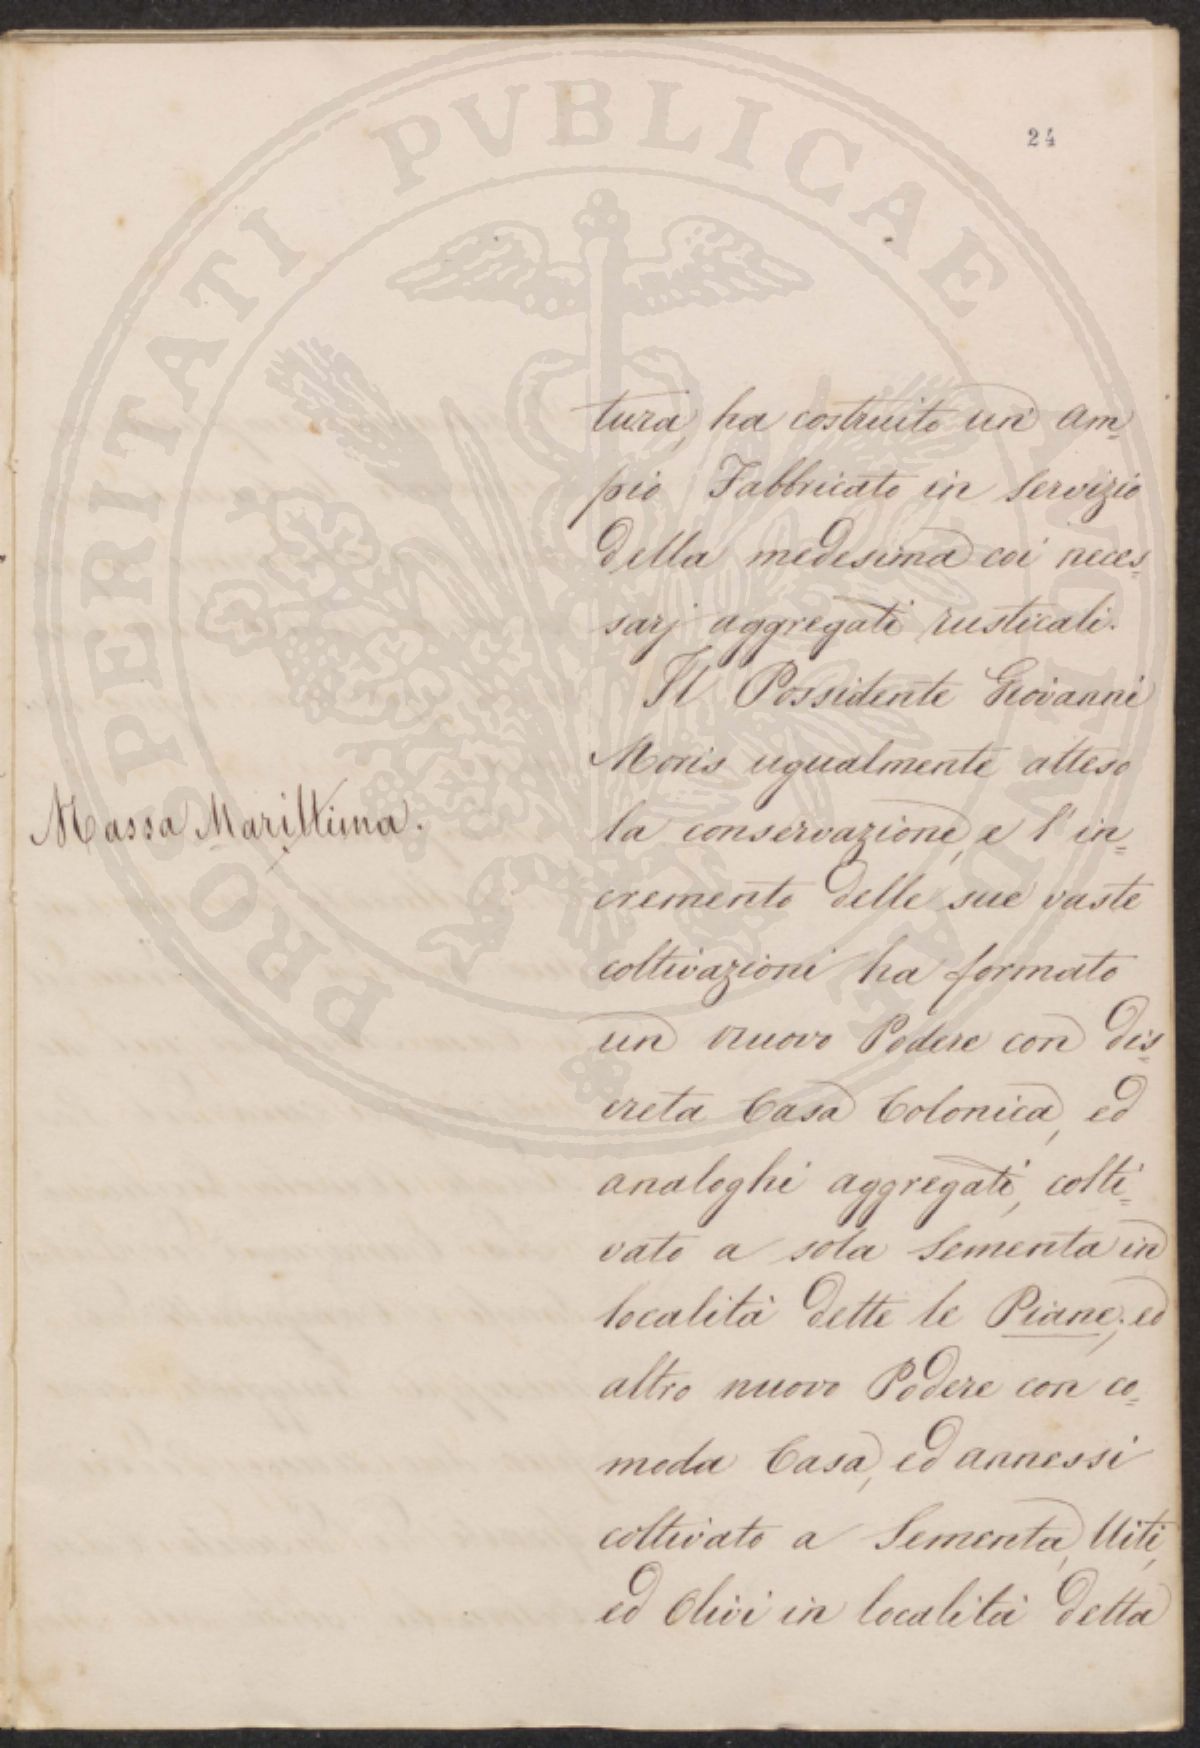 24
tura, ha costruito un am=
pio Fabbricato in servizio
della medesima coi neces=
sarj aggregati rusticali.
Il Possidente Giovanni
Moris ugualmente atteso
Massa Marittima.
la conservazione, e l'in=
cremento delle sue vaste
coltivazioni ha formato
un nuovo Podere con dis=
creta Casa Colonica, ed
analoghi aggregati, colti=
vato a sola Sementa in
località dette le Piane; ed
altro nuovo Podere con co=
moda Casa, ed annessi
coltivato a Sementa, Viti,
ed Olivi in località detta
PROSPERITATI PVBLICAE